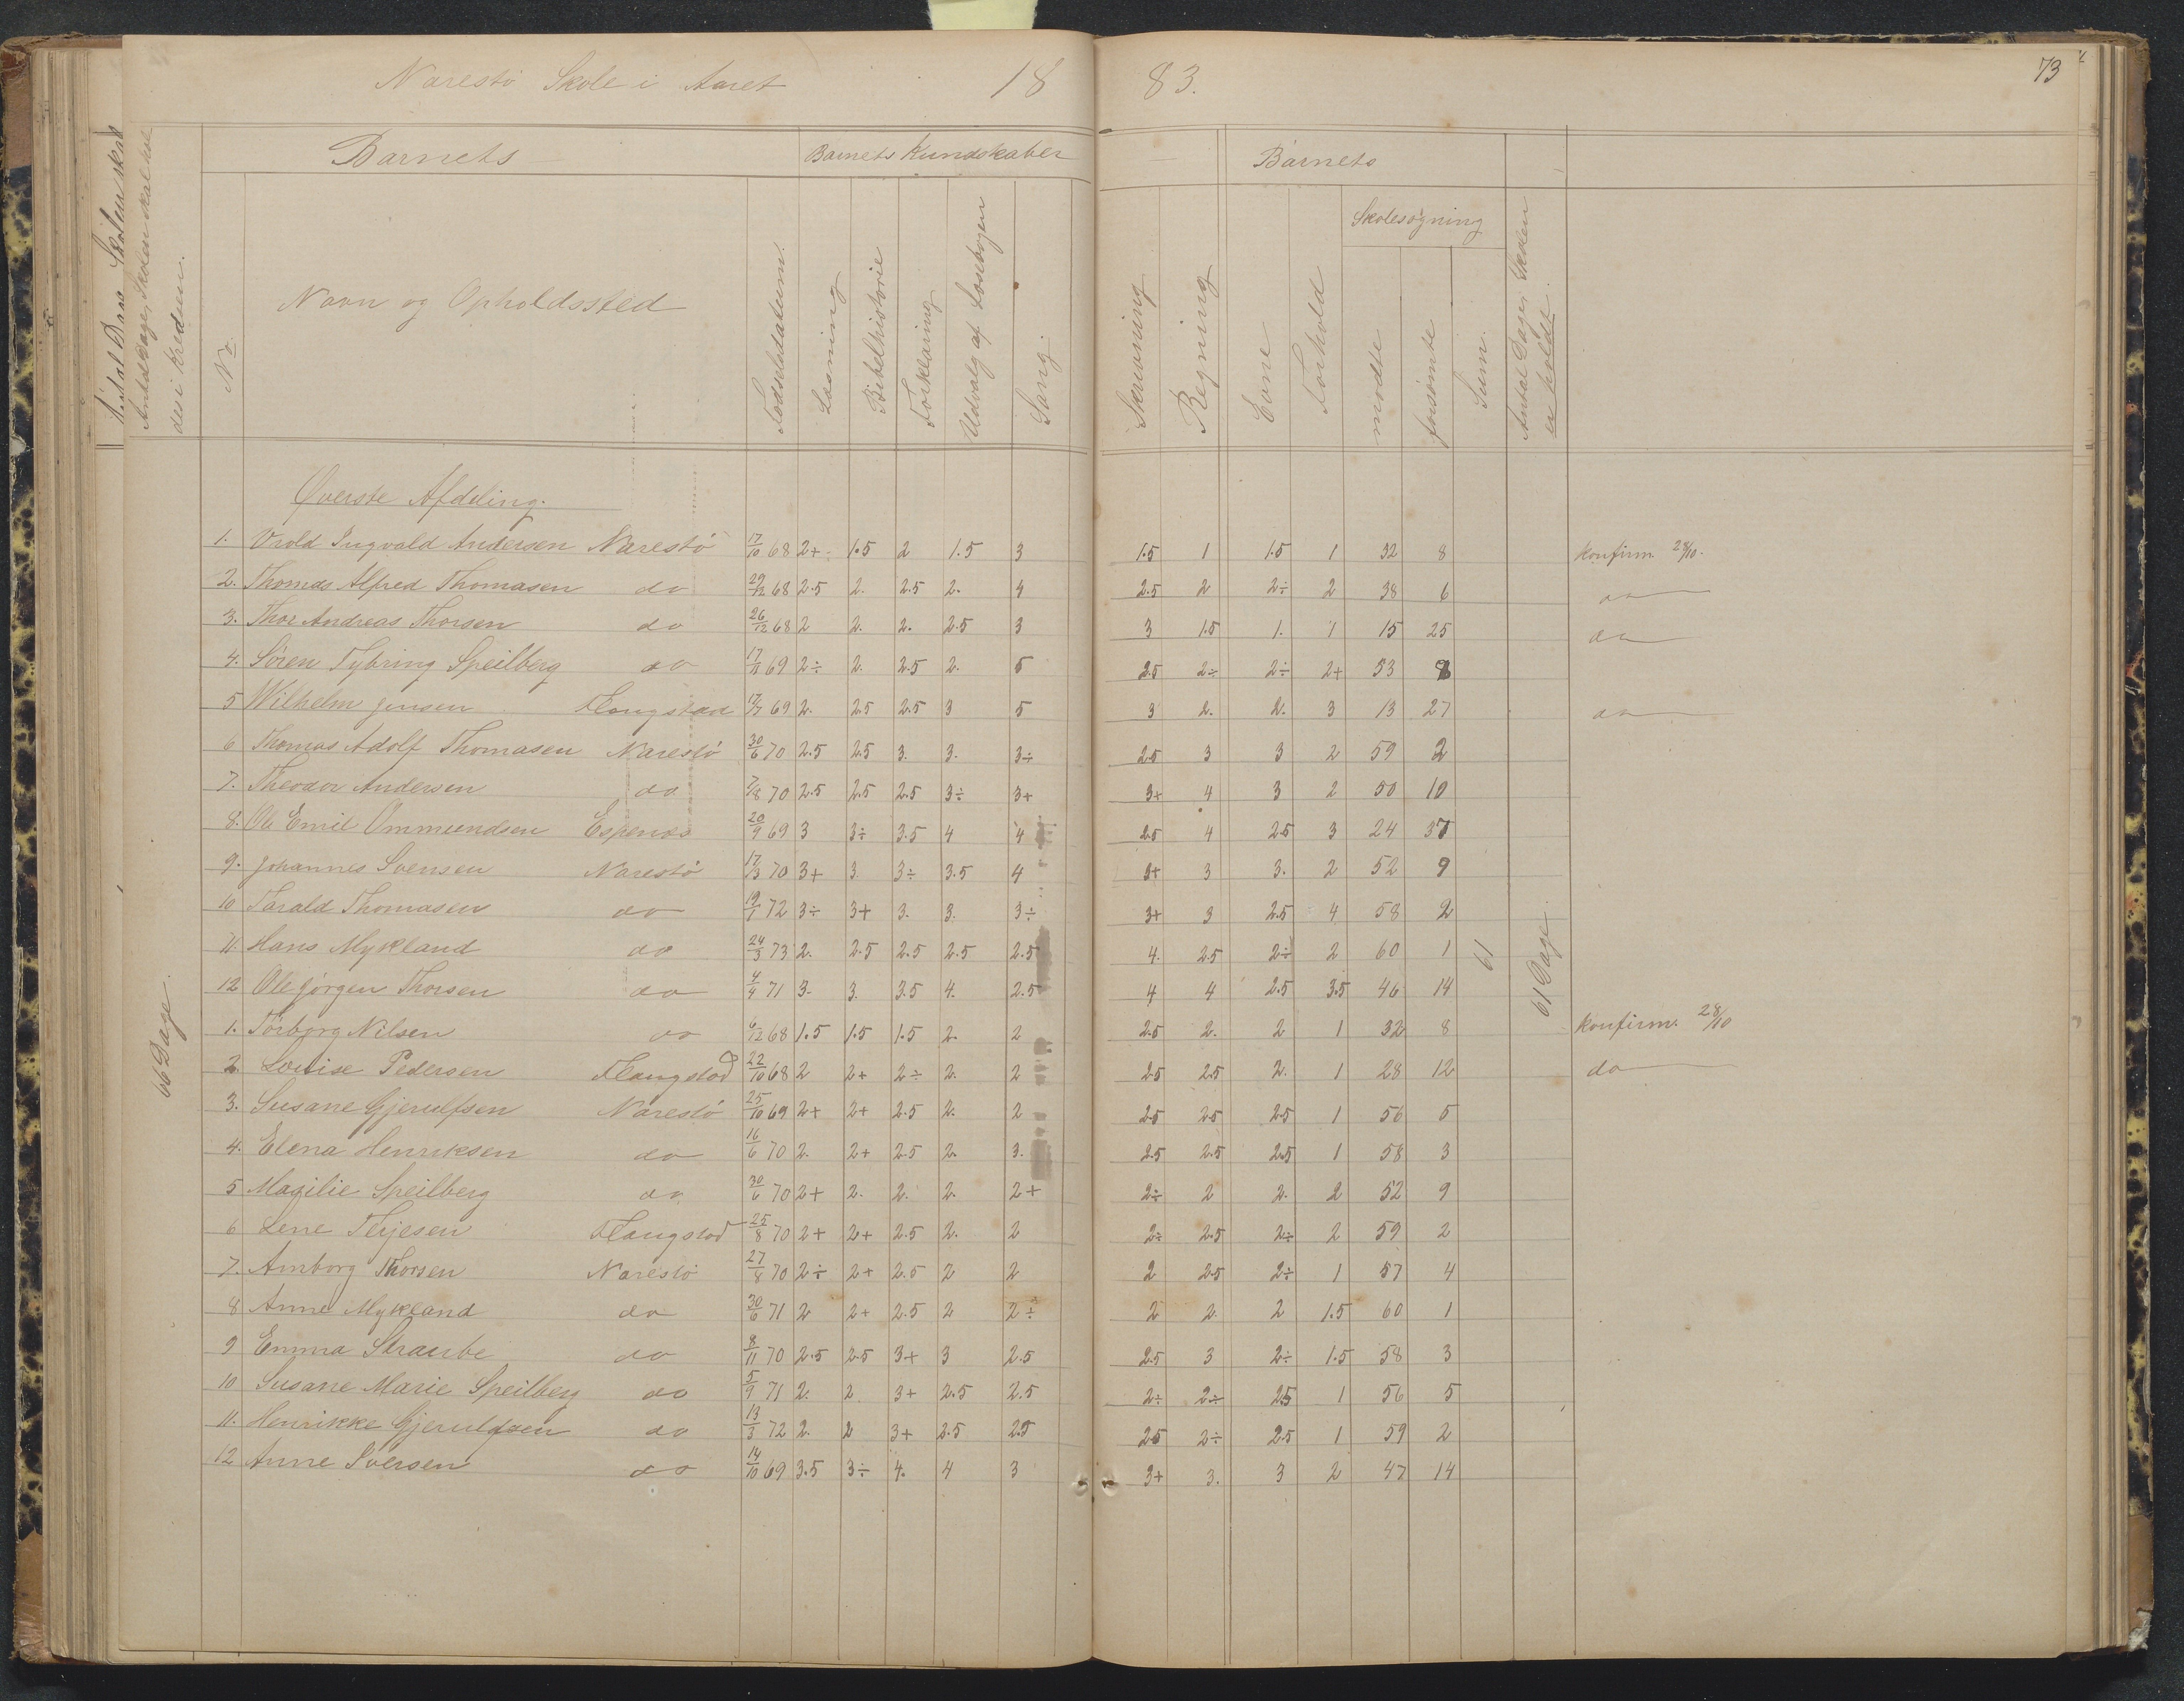 Narestö Skole i Aaret 18 83. 73
Barnets Barnets Kundskaber Barnets
Antal Dage, Skolen skal holdes i Kredsen.
No
Navn og Opholdssted
Fødselsdatum.
Læsning
Bibelhistorie
Forklaring
Udvalg af Læsebogen
Sang.
Skrivning
Regning
Evne
Forhold
Skolesøgning
mødte
forsømte
Sum.
Antal Dage, Skolen er holdt.
Øverste Afdeling.
1. Vrold Ingvald Andersen Narestö 17/10 68 2+ 1.5 2 1.5 3 1.5 1 1.5 1 32 8 konfirm. 28/10.
2. Thomas Alfred Thomasen do 29/12 68 2.5 2. 2.5 2. 4 2.5 2 2÷ 2 38 6 do
3. Thor Andreas Thorsen do 26/12 68 2 2. 2. 2.5 3 3 1.5 1. 1 15 25 do
4. Sören Tybring Speilberg do 17/11 69 2÷ 2. 2.5 2. 5 2.5 2÷ 2÷ 2+ 53 8
5 Wilhelm Jensen Flangstad 17/7 69 2. 2.5 2.5 3 5 3 2. 2. 3 13 27 do
6 Thomas Adolf Thomasen Narestö 30/6 70 2.5 2.5 3. 3. 3÷ 2.5 3 3 2 59 2
7. Theodor Andersen do 7/8 70 2.5 2.5 2.5 3÷ 3+ 3+ 4 3 2 50 10
8. Ole Emil Ommundsen Espenæs 20/9 69 3 3÷ 3.5 4 4 2.5 4 2.5 3 24 37
9. Johannes Svensen Narestö 17/3 70 3+ 3 3÷ 3.5 4 3+ 3 3. 2 52 9
10 Tarald Thomasen do 19/1 72 3÷ 3+ 3. 3. 3÷ 3+ 3 2.5 4 58 2
11. Hans Mykland do 24/3 73 2. 2.5 2.5 2.5 2.5 4. 2.5 2÷ 2 60 1 61 61 Dage.
12 Ole Jörgen Thorsen do 4/4 71 3. 3. 3.5 4. 2.5 4 4 2.5 3.5 46 14
66 Dage.
1. Torborg Nilsen do 6/12 68 1.5 1.5 1.5 2. 2 2.5 2. 2 1 32 8 konfirm. 28/10
2. Lovise Pedersen Flangstad 22/10 68 2 2+ 2÷ 2. 2 2.5 2.5 2. 1 28 12 do
3. Susane Gjerulfsen Narestö 25/10 69 2+ 2+ 2.5 2. 2 2.5 2.5 2.5 1 56 5
4. Elena Henriksen do 16/6 70 2. 2+ 2.5 2. 3. 2.5 2.5 2.5 1 58 3
5 Magilie Speilberg do 30/6 70 2+ 2. 2. 2. 2+ 2÷ 2 2. 2 52 9
6 Lene Terjesen Flangstad 25/8 70 2+ 2+ 2.5 2. 2 2÷ 2.5 2÷ 2 59 2
7. Amborg Thorsen Narestö 27/8 70 2÷ 2+ 2.5 2 2 2 2.5 2÷ 1 57 4
8 Anne Mykland do 30/6 71 2 2+ 2.5 2 2÷ 2 2. 2 1.5 60 1
9 Emma Straube do 8/11 70 2.5 2.5 3+ 3 2.5 2.5 3 2÷ 1.5 58 3
10 Susane Marie Speilberg do 5/9 71 2. 2 3+ 2.5 2.5 2÷ 2÷ 2.5 1 56 5
11. Henrikke Gjerulfsen do 13/3 72 2. 2 3+ 2.5 2.5 2.5 2÷ 2.5 1 59 2
12 Anne Iversen do 14/10 69 3.5 3÷ 4. 4 3 3+ 3. 3 2 47 14